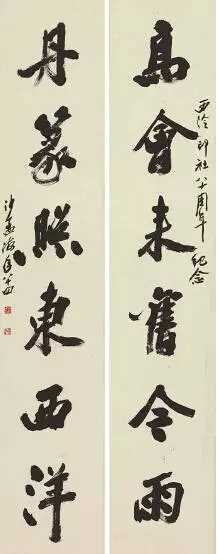 西泠印社八十周年紀念
高會来舊今雨
丹篆照東西洋
沙孟海